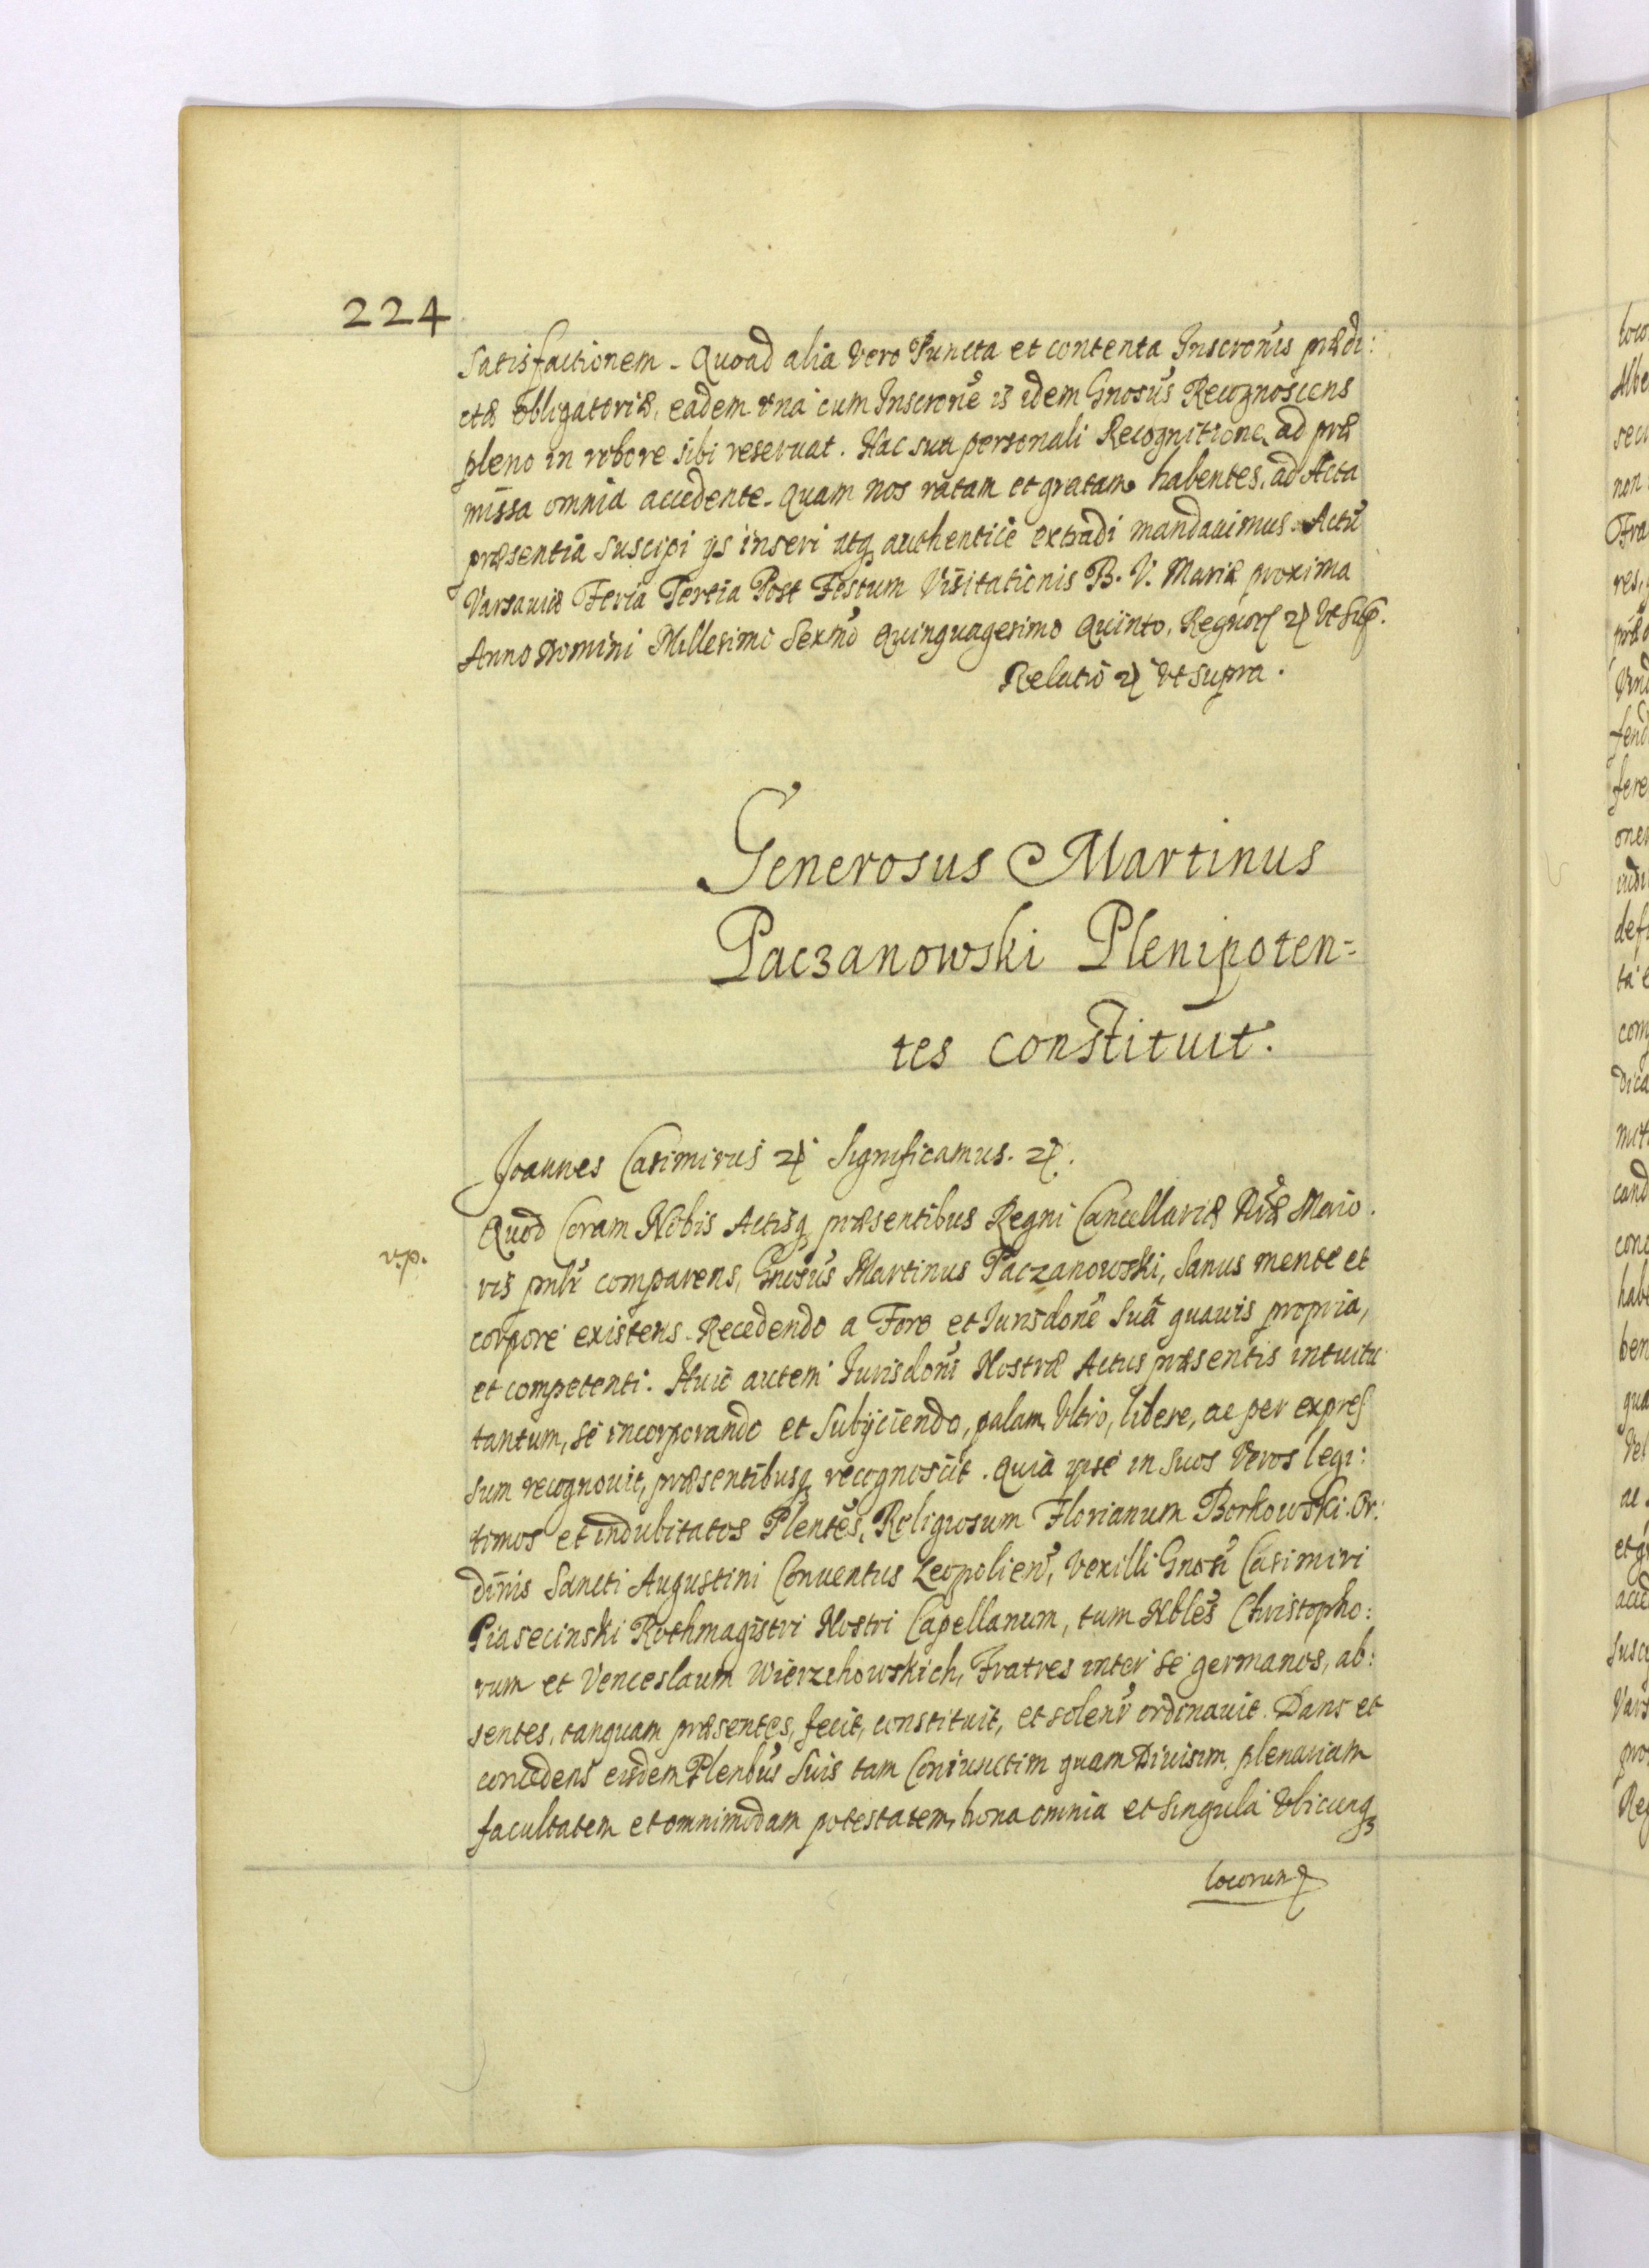 224
Satisfactionem. Quoad alia vero Puncta et contenta Inscronis prædi:
ctæ obligatoriæ, eadem vna cum Inscrone is idem Gnosus Recognoscens
pleno in robore sibi reseruat. Hac sua personali Recognitione ad præ
missa omnia accedente. Quam nos ratam et gratam habentes, ad Acta
præsentia suscipi ys inseri atq authentice extradi mandauimus. Actu
Varsauiæ Feria Tertia Post Festum Visitationis B. V. Mariæ proxima
Anno Domini Millesimo Sexmo Quinquagesimo Quinto, Regnor etc Vt Sup.
Relatio etc Vt supra.
Generosus Martinus
Paczanowski Plenipoten=
tes constituit.
Joannes Casimirus etc Significamus. etc.
Quod Coram Nobis Actisq præsentibus Regni Cancellariæ Nræ Maio.
v.p.
ris pnlr comparens, Gnosus Martinus Paczanowski, Sanus mente et
corpore existens. Recedendo a Foro et Iurisdone Sua quauis propria,
et competenti. Huic autem Iurisdoni Nostræ Actus præsentis intuitu
tantum, se incorporando et Subyciendo, palam, Vltro, libere, ac per expres
sum recognouit, præsentibusq recognoscit. Quia ipse in Suos Veros legi:
timos et indubitatos Plentes, Religiosum Florianum Borkowski. Or:
dinis Sancti Augustini Conuentus Leopolien, Vexilli Gnosi Casimiri
Piasecinski Rothmagistri Nostri Capellanum, tum Nbles Christopho:
rum et Venceslaum Wierzchowskich, Fratres inter se germanos, ab:
sentes, tanquam præsentes, fecit, constituit, et solenr ordinauit. Dans et
concedens eisdem Plenbus Suis tam Coniunctim quam Diuisim, plenariam
facultatem et omnimodam potestatem, bona omnia et singula Vbicunq
locorum